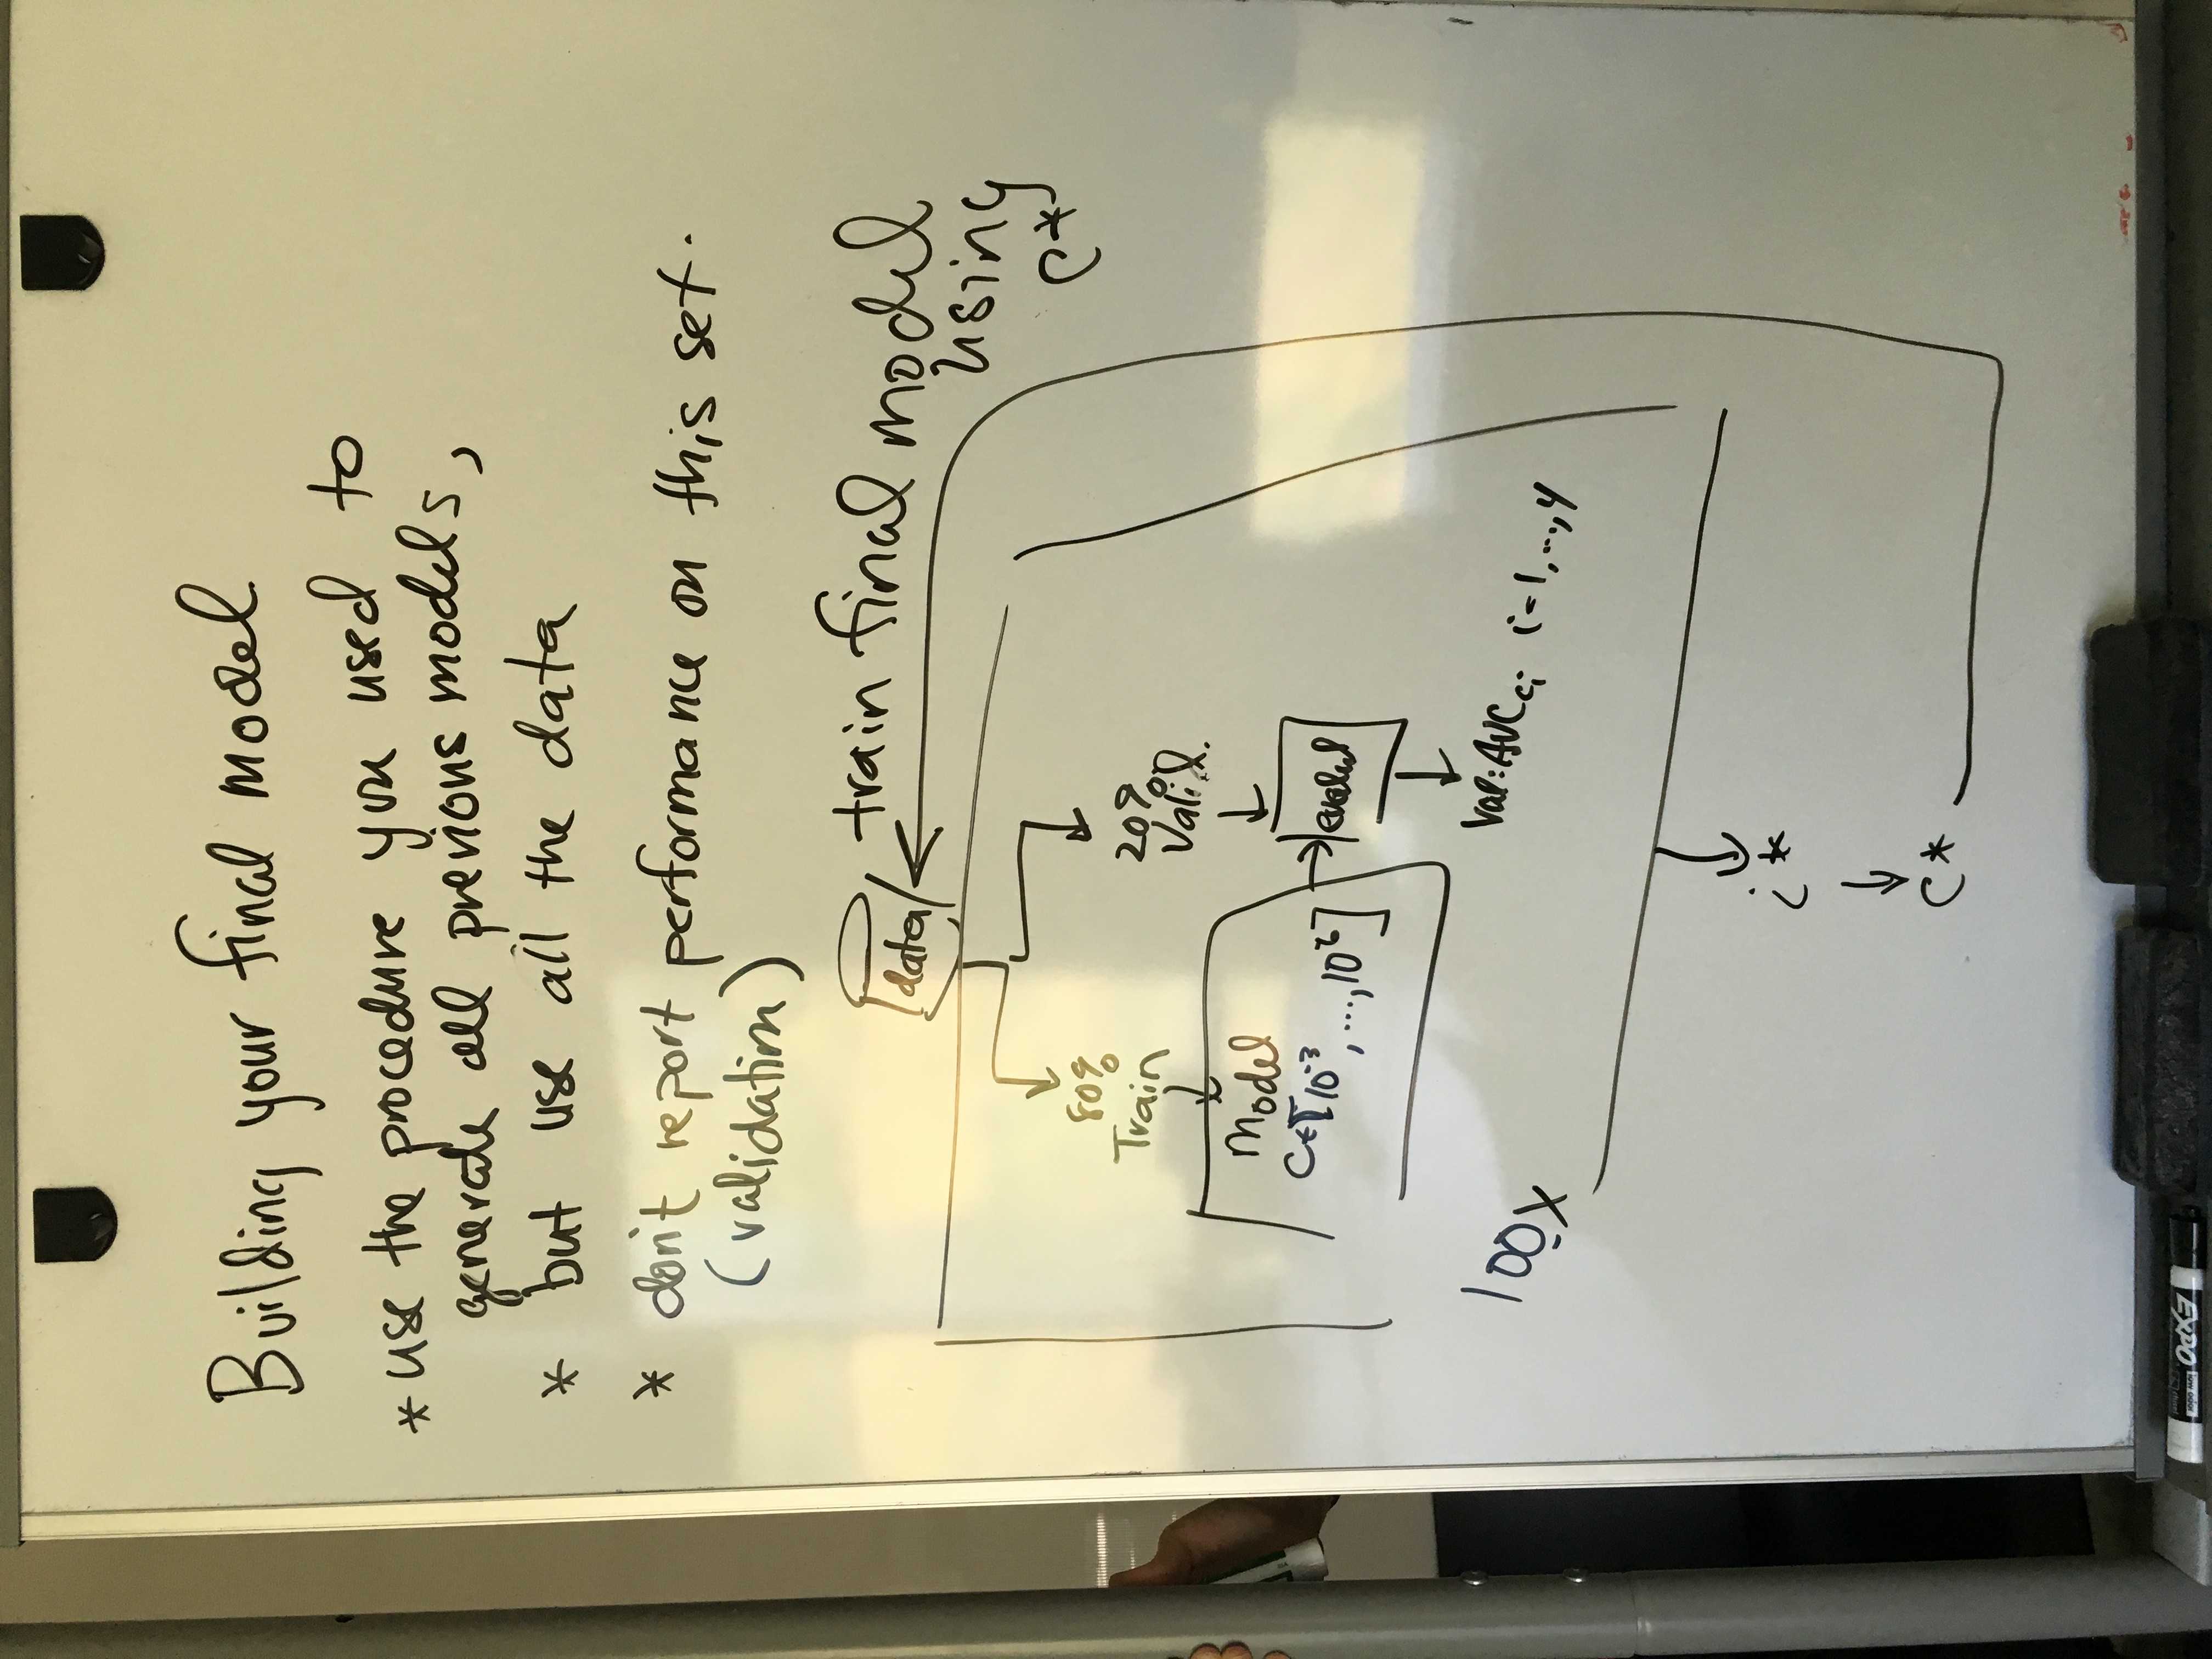 Building your final model
* use the procedure you used to
generate all previous models,
* but use all the data
* don't report performance on this set.
(validation)
data
train final model
using
C*
80%
Train
20%
Valid.
Model
C∈[10-3
, ..., 10
]
Val: AUC ci i=1, ..., 4
100x
i*
C*
EXPO
low odor